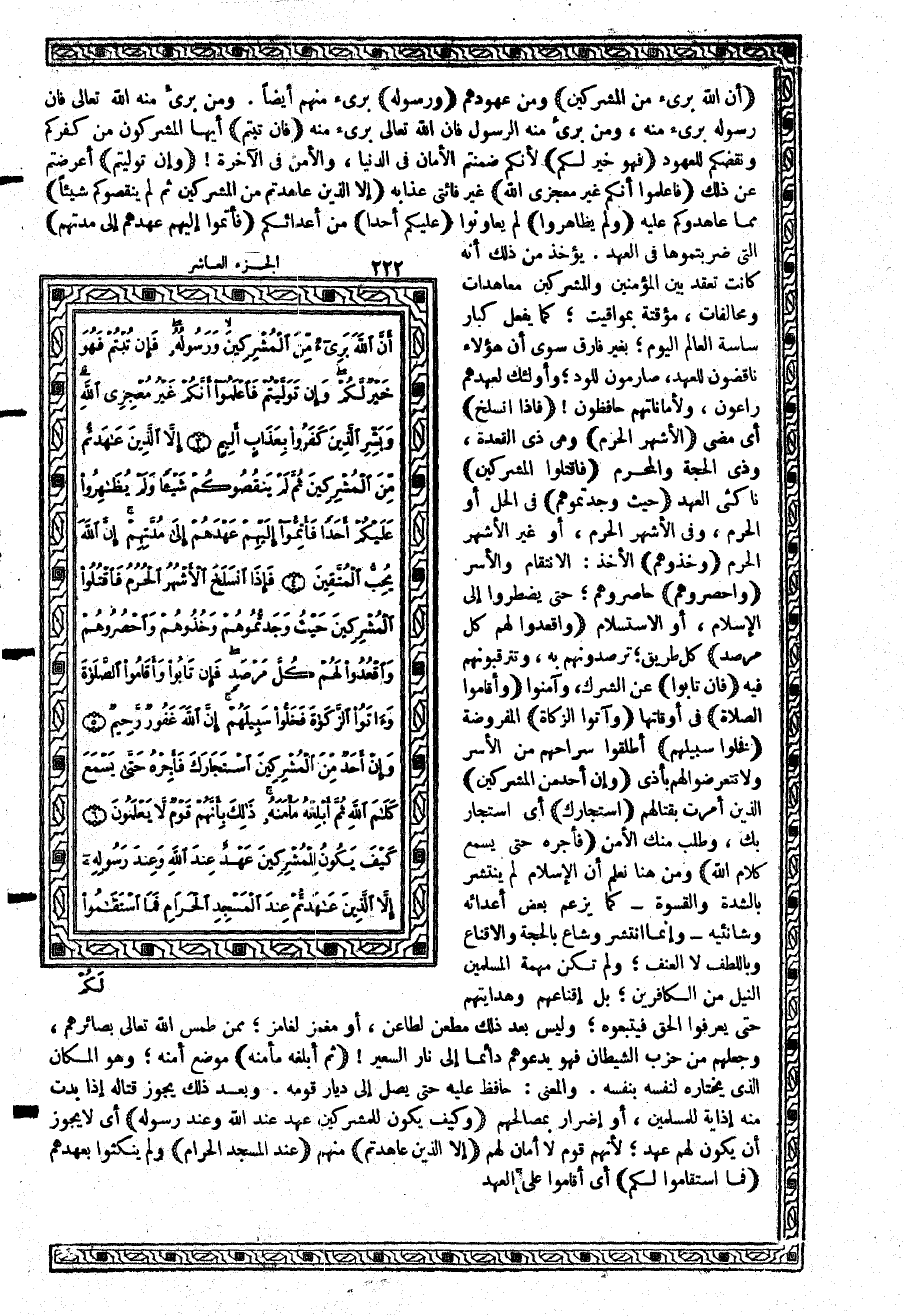 (أن الله برىء من المشركين) ومن عهودهم (ورسوله) برىء منهم أيضاً . ومن برىء منه الله تعالى فان
رسوله برىء منه ، ومن برىء منه الرسول فان الله تعالى برىء منه (فان تبتم) أيها المشركون من كفركم
ونقضكم للعهود (فهو خير لكم) لأنكم ضمنتم الأمان فى الدنيا ، والأمن فى الآخرة ! (وإن توليتم) أعرضتم
عن ذلك (فاعلموا أنكم غير معجزى الله) غير فائتى عذابه (إلا الذين عاهدتم من المشركين ثم لم ينقصوكم شيئاً)
مما عاهدوكم عليه (ولم يظاهروا) لم يعاونوا (عليكم أحدا) من أعدائكم (فأتموا إليهم عهدهم إلى مدتهم)
التى ضربتموها فى العهد . يؤخذ من ذلك أنه
كانت تعقد بين المؤمنين والمشركين معاهدات
ومحالفات ، مؤقتة بمواقيت ؛ كما يفعل كبار
ساسة العالم اليوم ؛ بغير فارق سوى أن هؤلاء
ناقضون للعهد، صارمون للود ؛ وأولئك لعهدهم
راعون ، ولأماناتهم حافظون ! (فاذا انسلخ)
أى مضى (الأشهر الحرم) وهى ذى القعدة ،
وذى الحجة والمحرم (فاقتلوا المشركين)
ناكثى العهد (حيث وجدتموهم) فى الحل أو
الحرم ، وفى الأشهر الحرم ، أو غير الأشهر
الحرم (وخذوهم) الأخذ : الانتقام والأسر
(واحصروهم) حاصروهم ؛ حتى يضطروا إلى
الإسلام ، أو الاستسلام (واقعدوا لهم كل
مرصد) كل طريق؛ ترصدونهم به ، وتترقبونهم
فيه (فان تابوا) عن الشرك، وآمنوا (وأقاموا
الصلاة) فى أوقاتها (وآتوا الزكاة) المفروضة
(فخلوا سبيلهم) أطلقوا سراحهم من الأسر
ولا تتعرضوا لهم بأذى (وإن أحد من المشركين)
الذين أمرت بقتالهم (استجارك) أى استجار
بك ، وطلب منك الأمن (فأجره حتى يسمع
كلام الله) ومن هنا نعلم أن الإسلام لم ينتشر
بالشدة والقسوة – كما يزعم بعض أعدائه
وشانئيه – وإنما انتشر وشاع بالحجة والاقناع
وباللطف لا العنف ؛ ولم تكن مهمة المسلمين
النيل من الكافرين ؛ بل إقناعهم وهدايتهم
٢٢٢ الجزء العاشر
أَنَّ ٱللَّهَ بَرِىٓءٌ مِّنَ ٱلْمُشْرِكِينَ وَرَسُولُهُۥ فَإِن تُبْتُمْ فَهُوَ
خَيْرٌ لَّكُمْ وَإِن تَوَلَّيْتُمْ فَٱعْلَمُوٓا۟ أَنَّكُمْ غَيْرُ مُعْجِزِى ٱللَّهِ
وَبَشِّرِ ٱلَّذِينَ كَفَرُوا۟ بِعَذَابٍ أَلِيمٍ ٣ إِلَّا ٱلَّذِينَ عَٰهَدتُّم
مِّنَ ٱلْمُشْرِكِينَ ثُمَّ لَمْ يَنقُصُوكُمْ شَيْـًٔا وَلَمْ يُظَٰهِرُوا۟
عَلَيْكُمْ أَحَدًا فَأَتِمُّوٓا۟ إِلَيْهِمْ عَهْدَهُمْ إِلَىٰ مُدَّتِهِمْ إِنَّ ٱللَّهَ
يُحِبُّ ٱلْمُتَّقِينَ ٤ فَإِذَا ٱنسَلَخَ ٱلْأَشْهُرُ ٱلْحُرُمُ فَٱقْتُلُوا۟
ٱلْمُشْرِكِينَ حَيْثُ وَجَدتُّمُوهُمْ وَخُذُوهُمْ وَٱحْصُرُوهُمْ
وَٱقْعُدُوا۟ لَهُمْ كُلَّ مَرْصَدٍ فَإِن تَابُوا۟ وَأَقَامُوا۟ ٱلصَّلَوٰةَ
وَءَاتَوُا۟ ٱلزَّكَوٰةَ فَخَلُّوا۟ سَبِيلَهُمْ إِنَّ ٱللَّهَ غَفُورٌ رَّحِيمٌ ٥
وَإِنْ أَحَدٌ مِّنَ ٱلْمُشْرِكِينَ ٱسْتَجَارَكَ فَأَجِرْهُ حَتَّىٰ يَسْمَعَ
كَلَٰمَ ٱللَّهِ ثُمَّ أَبْلِغْهُ مَأْمَنَهُۥ ذَٰلِكَ بِأَنَّهُمْ قَوْمٌ لَّا يَعْلَمُونَ ٦
كَيْفَ يَكُونُ لِلْمُشْرِكِينَ عَهْدٌ عِندَ ٱللَّهِ وَعِندَ رَسُولِهِۦٓ
إِلَّا ٱلَّذِينَ عَٰهَدتُّمْ عِندَ ٱلْمَسْجِدِ ٱلْحَرَامِ فَمَا ٱسْتَقَٰمُوا۟
لَكُمْ
حتى يعرفوا الحق فيتبعوه ؛ وليس بعد ذلك مطعن لطاعن ، أو مغمز لغامز ؛ ممن طمس الله تعالى بصائرهم ،
وجعلهم من حزب الشيطان فهو يدعوهم دائما إلى نار السعير ! (ثم أبلغه مأمنه) موضع أمنه ؛ وهو المكان
الذى يختاره لنفسه بنفسه . والمعنى : حافظ عليه حتى يصل إلى ديار قومه . وبعد ذلك يجوز قتاله إذا بدت
منه إذاية للمسلمين ، أو إضرار بمصالحهم (وكيف يكون للمشركين عهد عند الله وعند رسوله) أى لايجوز
أن يكون لهم عهد ؛ لأنهم قوم لا أمان لهم (إلا الذين عاهدتم) منهم (عند المسجد الحرام) ولم ينكثوا بعهدهم
(فما استقاموا لكم) أى أقاموا على العهد